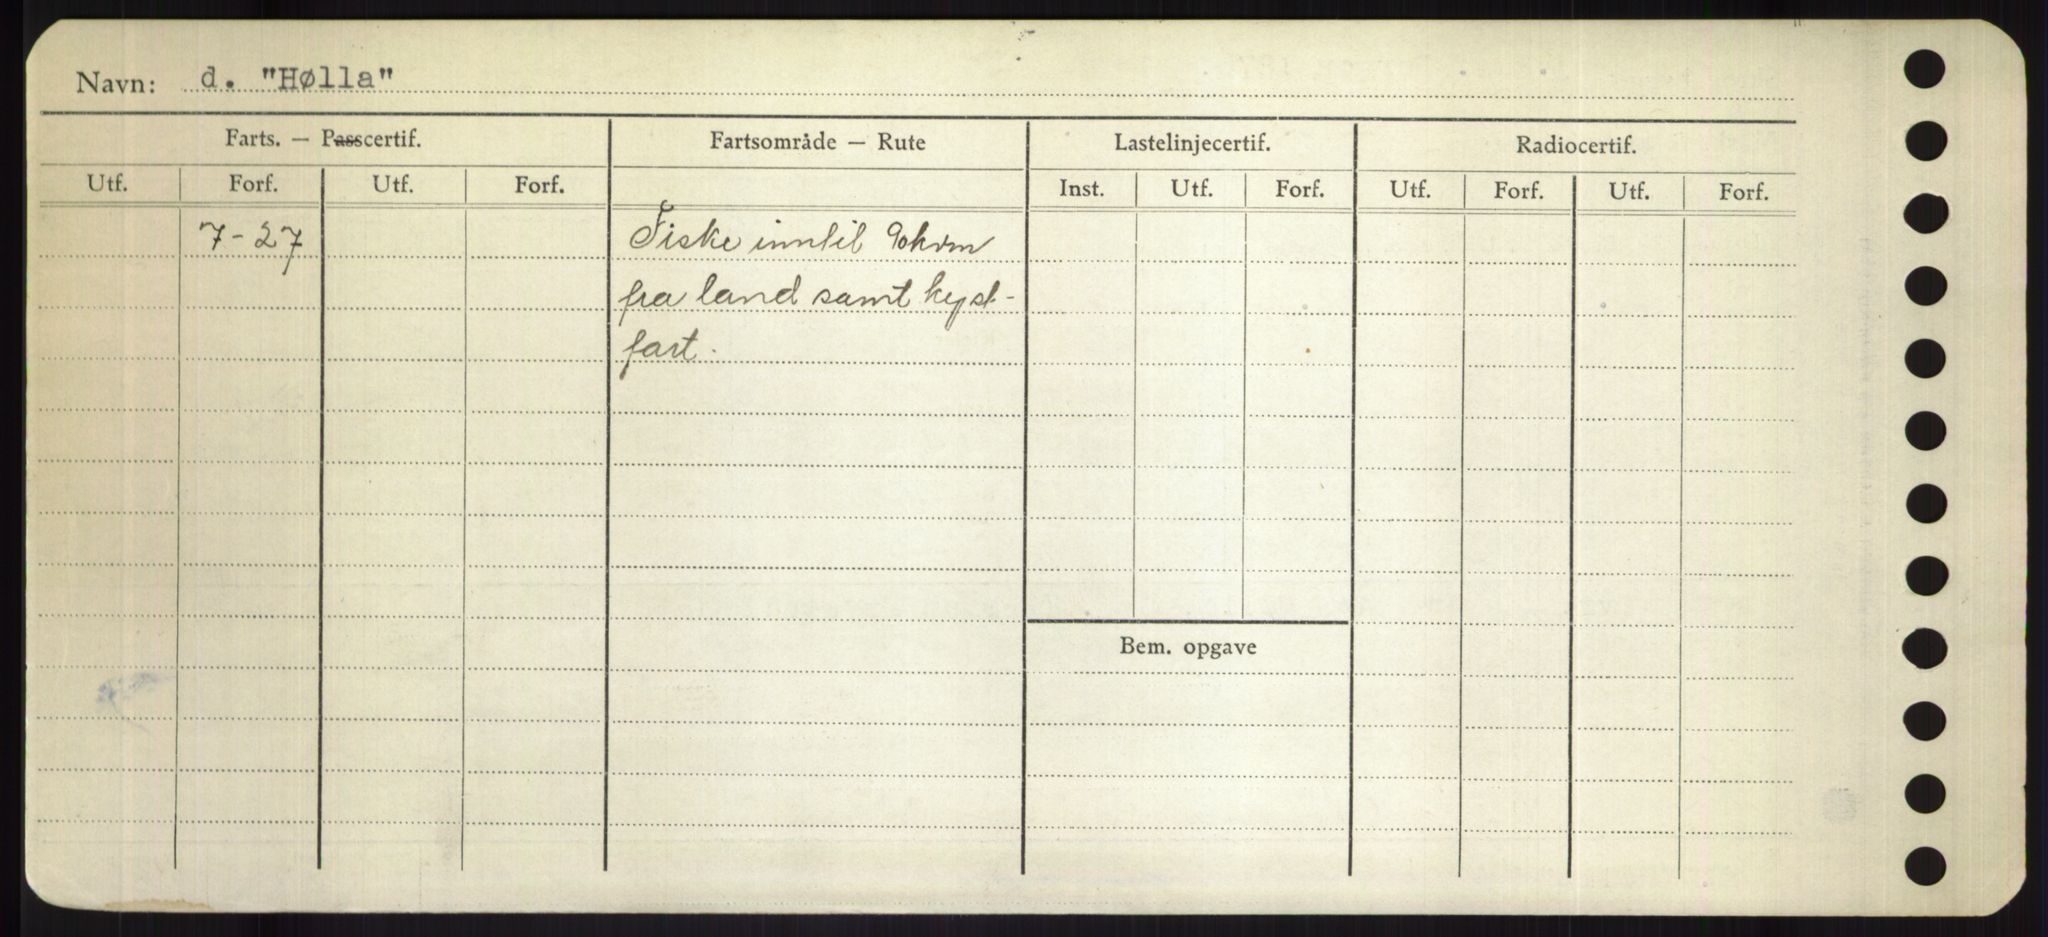 Navn: d. "Hølla"
Farts. — Passcertif. Fartsområde — Rute Lastelinjecertif. Radiocertif.
Utf. Forf. Utf. Forf. Inst. Utf. Forf. Utf. Forf. Utf. Forf.
7-27 Fiske inntil 90kvm
fra land samt kyst-
fart.
Bem. opgave